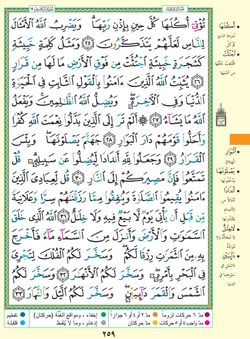 تُؤْتِىٓ أُكُلَهَا كُلَّ حِينٍۭ بِإِذْنِ رَبِّهَا ۗ وَيَضْرِبُ ٱللَّهُ ٱلْأَمْثَالَ
لِلنَّاسِ لَعَلَّهُمْ يَتَذَكَّرُونَ ٢٥ وَمَثَلُ كَلِمَةٍ خَبِيثَةٍ
كَشَجَرَةٍ خَبِيثَةٍ ٱجْتُثَّتْ مِن فَوْقِ ٱلْأَرْضِ مَا لَهَا مِن قَرَارٍ ٢٦
يُثَبِّتُ ٱللَّهُ ٱلَّذِينَ ءَامَنُوا۟ بِٱلْقَوْلِ ٱلثَّابِتِ فِى ٱلْحَيَوٰةِ
ٱلدُّنْيَا وَفِى ٱلْءَاخِرَةِ ۖ وَيُضِلُّ ٱللَّهُ ٱلظَّٰلِمِينَ ۚ وَيَفْعَلُ ٱللَّهُ
مَا يَشَآءُ ٢٧ أَلَمْ تَرَ إِلَى ٱلَّذِينَ بَدَّلُوا۟ نِعْمَتَ ٱللَّهِ كُفْرًا
وَأَحَلُّوا۟ قَوْمَهُمْ دَارَ ٱلْبَوَارِ ٢٨ جَهَنَّمَ يَصْلَوْنَهَا ۖ وَبِئْسَ
ٱلْقَرَارُ ٢٩ وَجَعَلُوا۟ لِلَّهِ أَندَادًا لِّيُضِلُّوا۟ عَن سَبِيلِهِۦ ۗ قُلْ
تَمَتَّعُوا۟ فَإِنَّ مَصِيرَكُمْ إِلَى ٱلنَّارِ ٣٠ قُل لِّعِبَادِىَ ٱلَّذِينَ
ءَامَنُوا۟ يُقِيمُوا۟ ٱلصَّلَوٰةَ وَيُنفِقُوا۟ مِمَّا رَزَقْنَٰهُمْ سِرًّا وَعَلَانِيَةً
مِّن قَبْلِ أَن يَأْتِىَ يَوْمٌ لَّا بَيْعٌ فِيهِ وَلَا خِلَٰلٌ ٣١ ٱللَّهُ ٱلَّذِى خَلَقَ
ٱلسَّمَٰوَٰتِ وَٱلْأَرْضَ وَأَنزَلَ مِنَ ٱلسَّمَآءِ مَآءً فَأَخْرَجَ
بِهِۦ مِنَ ٱلثَّمَرَٰتِ رِزْقًا لَّكُمْ ۖ وَسَخَّرَ لَكُمُ ٱلْفُلْكَ لِتَجْرِىَ
فِى ٱلْبَحْرِ بِأَمْرِهِۦ ۖ وَسَخَّرَ لَكُمُ ٱلْأَنْهَٰرَ ٣٢ وَسَخَّرَ لَكُمُ
ٱلشَّمْسَ وَٱلْقَمَرَ دَآئِبَيْنِ ۖ وَسَخَّرَ لَكُمُ ٱلَّيْلَ وَٱلنَّهَارَ ٣٣
٢٥٩